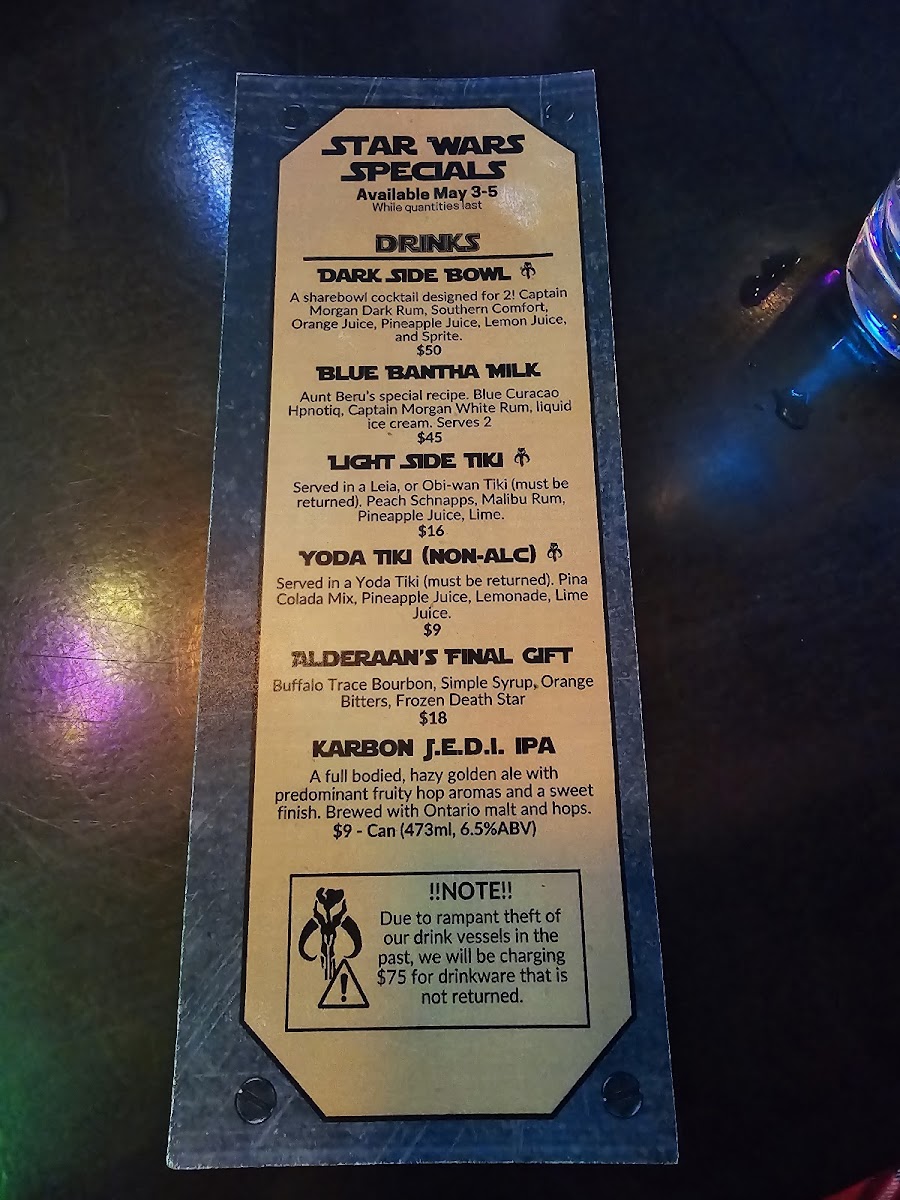 STAR WARS
SPECIALS
Available May 3-5
While quantities last
DRINKS
DARK SIDE BOWL
A sharebowl cocktail designed for 2! Captain
Morgan Dark Rum, Southern Comfort,
Orange Juice, Pineapple Juice, Lemon Juice,
and Sprite.
$50
BLUE BANTHA MILK
Aunt Beru's special recipe. Blue Curacao
Hpnotiq, Captain Morgan White Rum, liquid
ice cream. Serves 2
$45
LIGHT SIDE TIKI
Served in a Leia, or Obi-wan Tiki (must be
returned). Peach Schnapps, Malibu Rum,
Pineapple Juice, Lime.
$16
YODA TIKI (NON-ALC)
Served in a Yoda Tiki (must be returned). Pina
Colada Mix, Pineapple Juice, Lemonade, Lime
Juice.
$9
ALDERAAN'S FINAL GIFT
Buffalo Trace Bourbon, Simple Syrup, Orange
Bitters, Frozen Death Star
$18
KARBON J.E.D.I. IPA
A full bodied, hazy golden ale with
predominant fruity hop aromas and a sweet
finish. Brewed with Ontario malt and hops.
$9 - Can (473ml, 6.5%ABV)
!!NOTE!!
Due to rampant theft of
our drink vessels in the
past, we will be charging
$75 for drinkware that is
not returned.